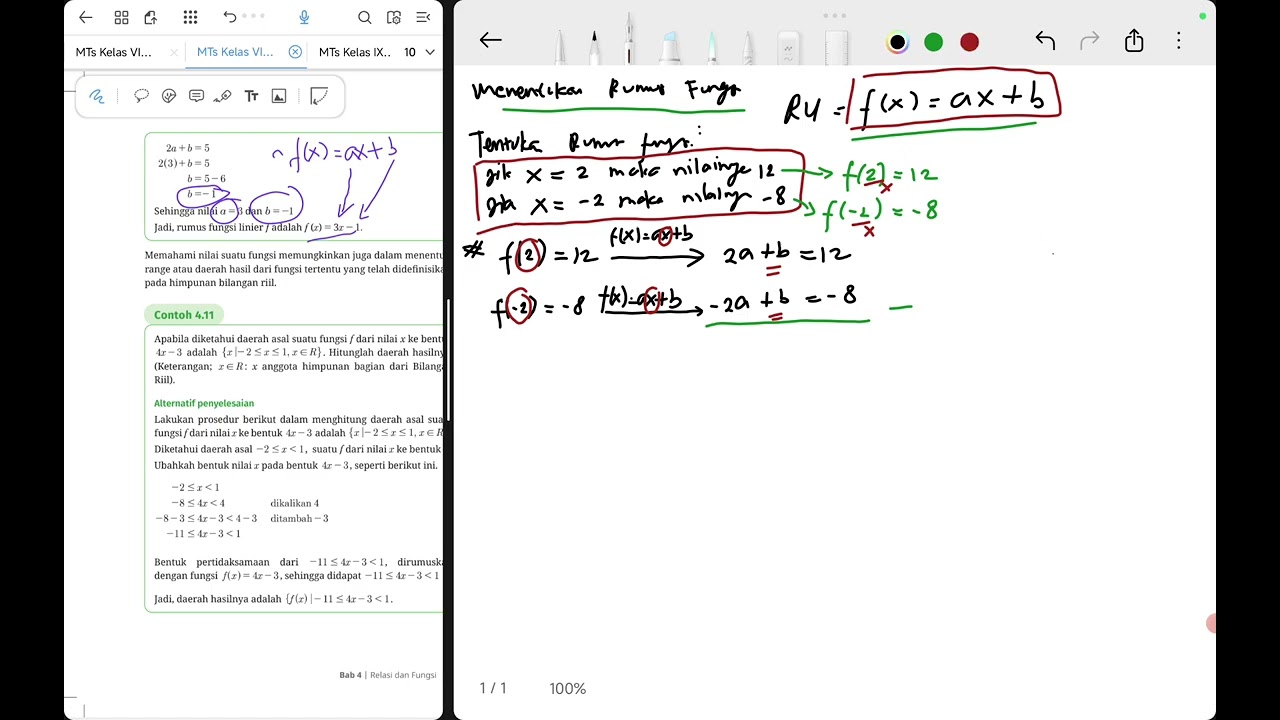 MTs Kelas VI...
MTs Kelas VI...
MTs Kelas IX...
10
2a + b = 5
2(3) + b = 5
b = 5 − 6
b = −1
f(x) = ax + b
Sehingga nilai a = 3 dan b = −1
Jadi, rumus fungsi linier f adalah f(x) = 3x − 1.
Memahami nilai suatu fungsi memungkinkan juga dalam menentu
range atau daerah hasil dari fungsi tertentu yang telah didefinisika
pada himpunan bilangan riil.
Contoh 4.11
Apabila diketahui daerah asal suatu fungsi f dari nilai x ke bentu
4x − 3 adalah {x | −2 ≤ x ≤ 1, x ∈ R}. Hitunglah daerah hasilny
(Keterangan; x ∈ R : x anggota himpunan bagian dari Bilang
Riil).
Alternatif penyelesaian
Lakukan prosedur berikut dalam menghitung daerah asal sua
fungsi f dari nilai x ke bentuk 4x − 3 adalah {x | −2 ≤ x ≤ 1, x ∈ R
Diketahui daerah asal −2 ≤ x < 1, suatu f dari nilai x ke bentuk
Ubahkah bentuk nilai x pada bentuk 4x − 3, seperti berikut ini.
−2 ≤ x < 1
−8 ≤ 4x < 4 dikalikan 4
−8 − 3 ≤ 4x − 3 < 4 − 3 ditambah − 3
−11 ≤ 4x − 3 < 1
Bentuk pertidaksamaan dari −11 ≤ 4x − 3 < 1, dirumuska
dengan fungsi f(x) = 4x − 3, sehingga didapat −11 ≤ 4x − 3 < 1
Jadi, daerah hasilnya adalah {f(x) | −11 ≤ 4x − 3 < 1.
Bab 4 | Relasi dan Fungsi
Rumus Fungsi
RU = f(x) = ax + b
Tentuka Rumus fungsi :
jik x = 2 maka nilainya 12 → f(2) = 12
x
jika x = -2 maka nilainy -8 → f(-2) = -8
x
* f(2) = 12 f(x) = ax + b → 2a + b = 12
f(-2) = -8 f(x) = ax + b → -2a + b = -8 —
1 / 1
100%